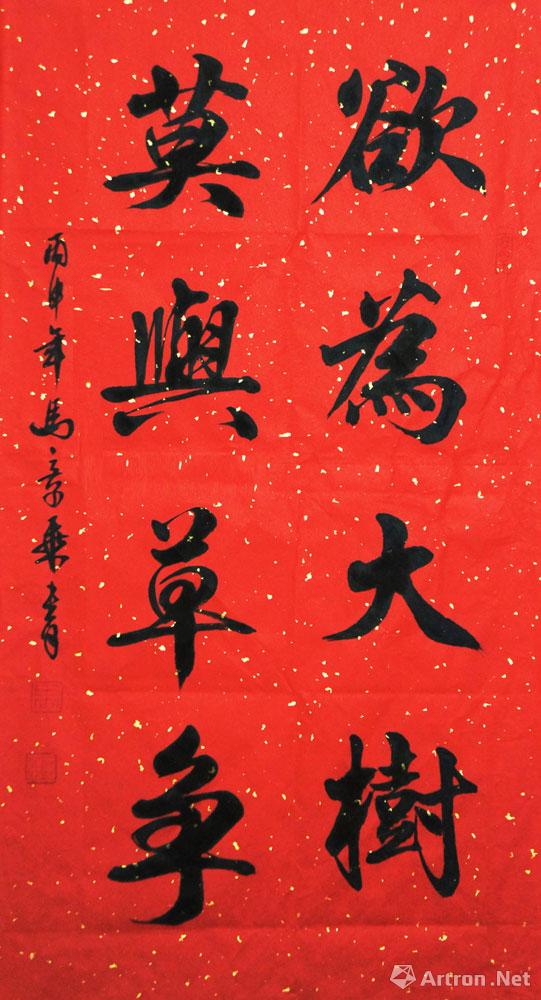 欲為大樹
莫與草争
丙申年馬景乘书
Artron.Net